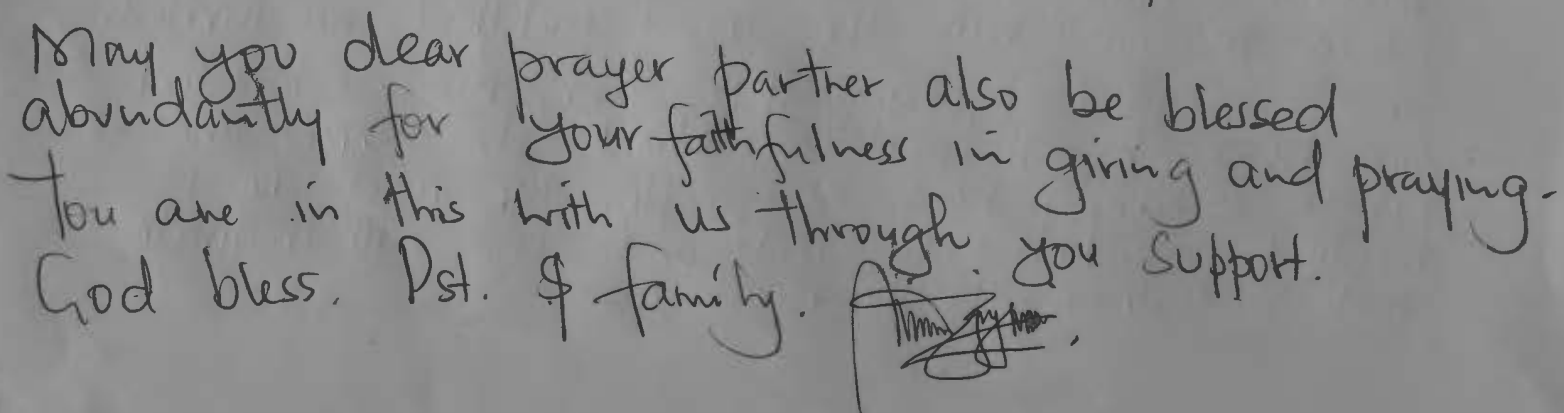 May you dear prayer partner also be blessed
abundantly for your faithfulness in giving and praying.
You are in this with us through you support.
God bless. Pst. & family.